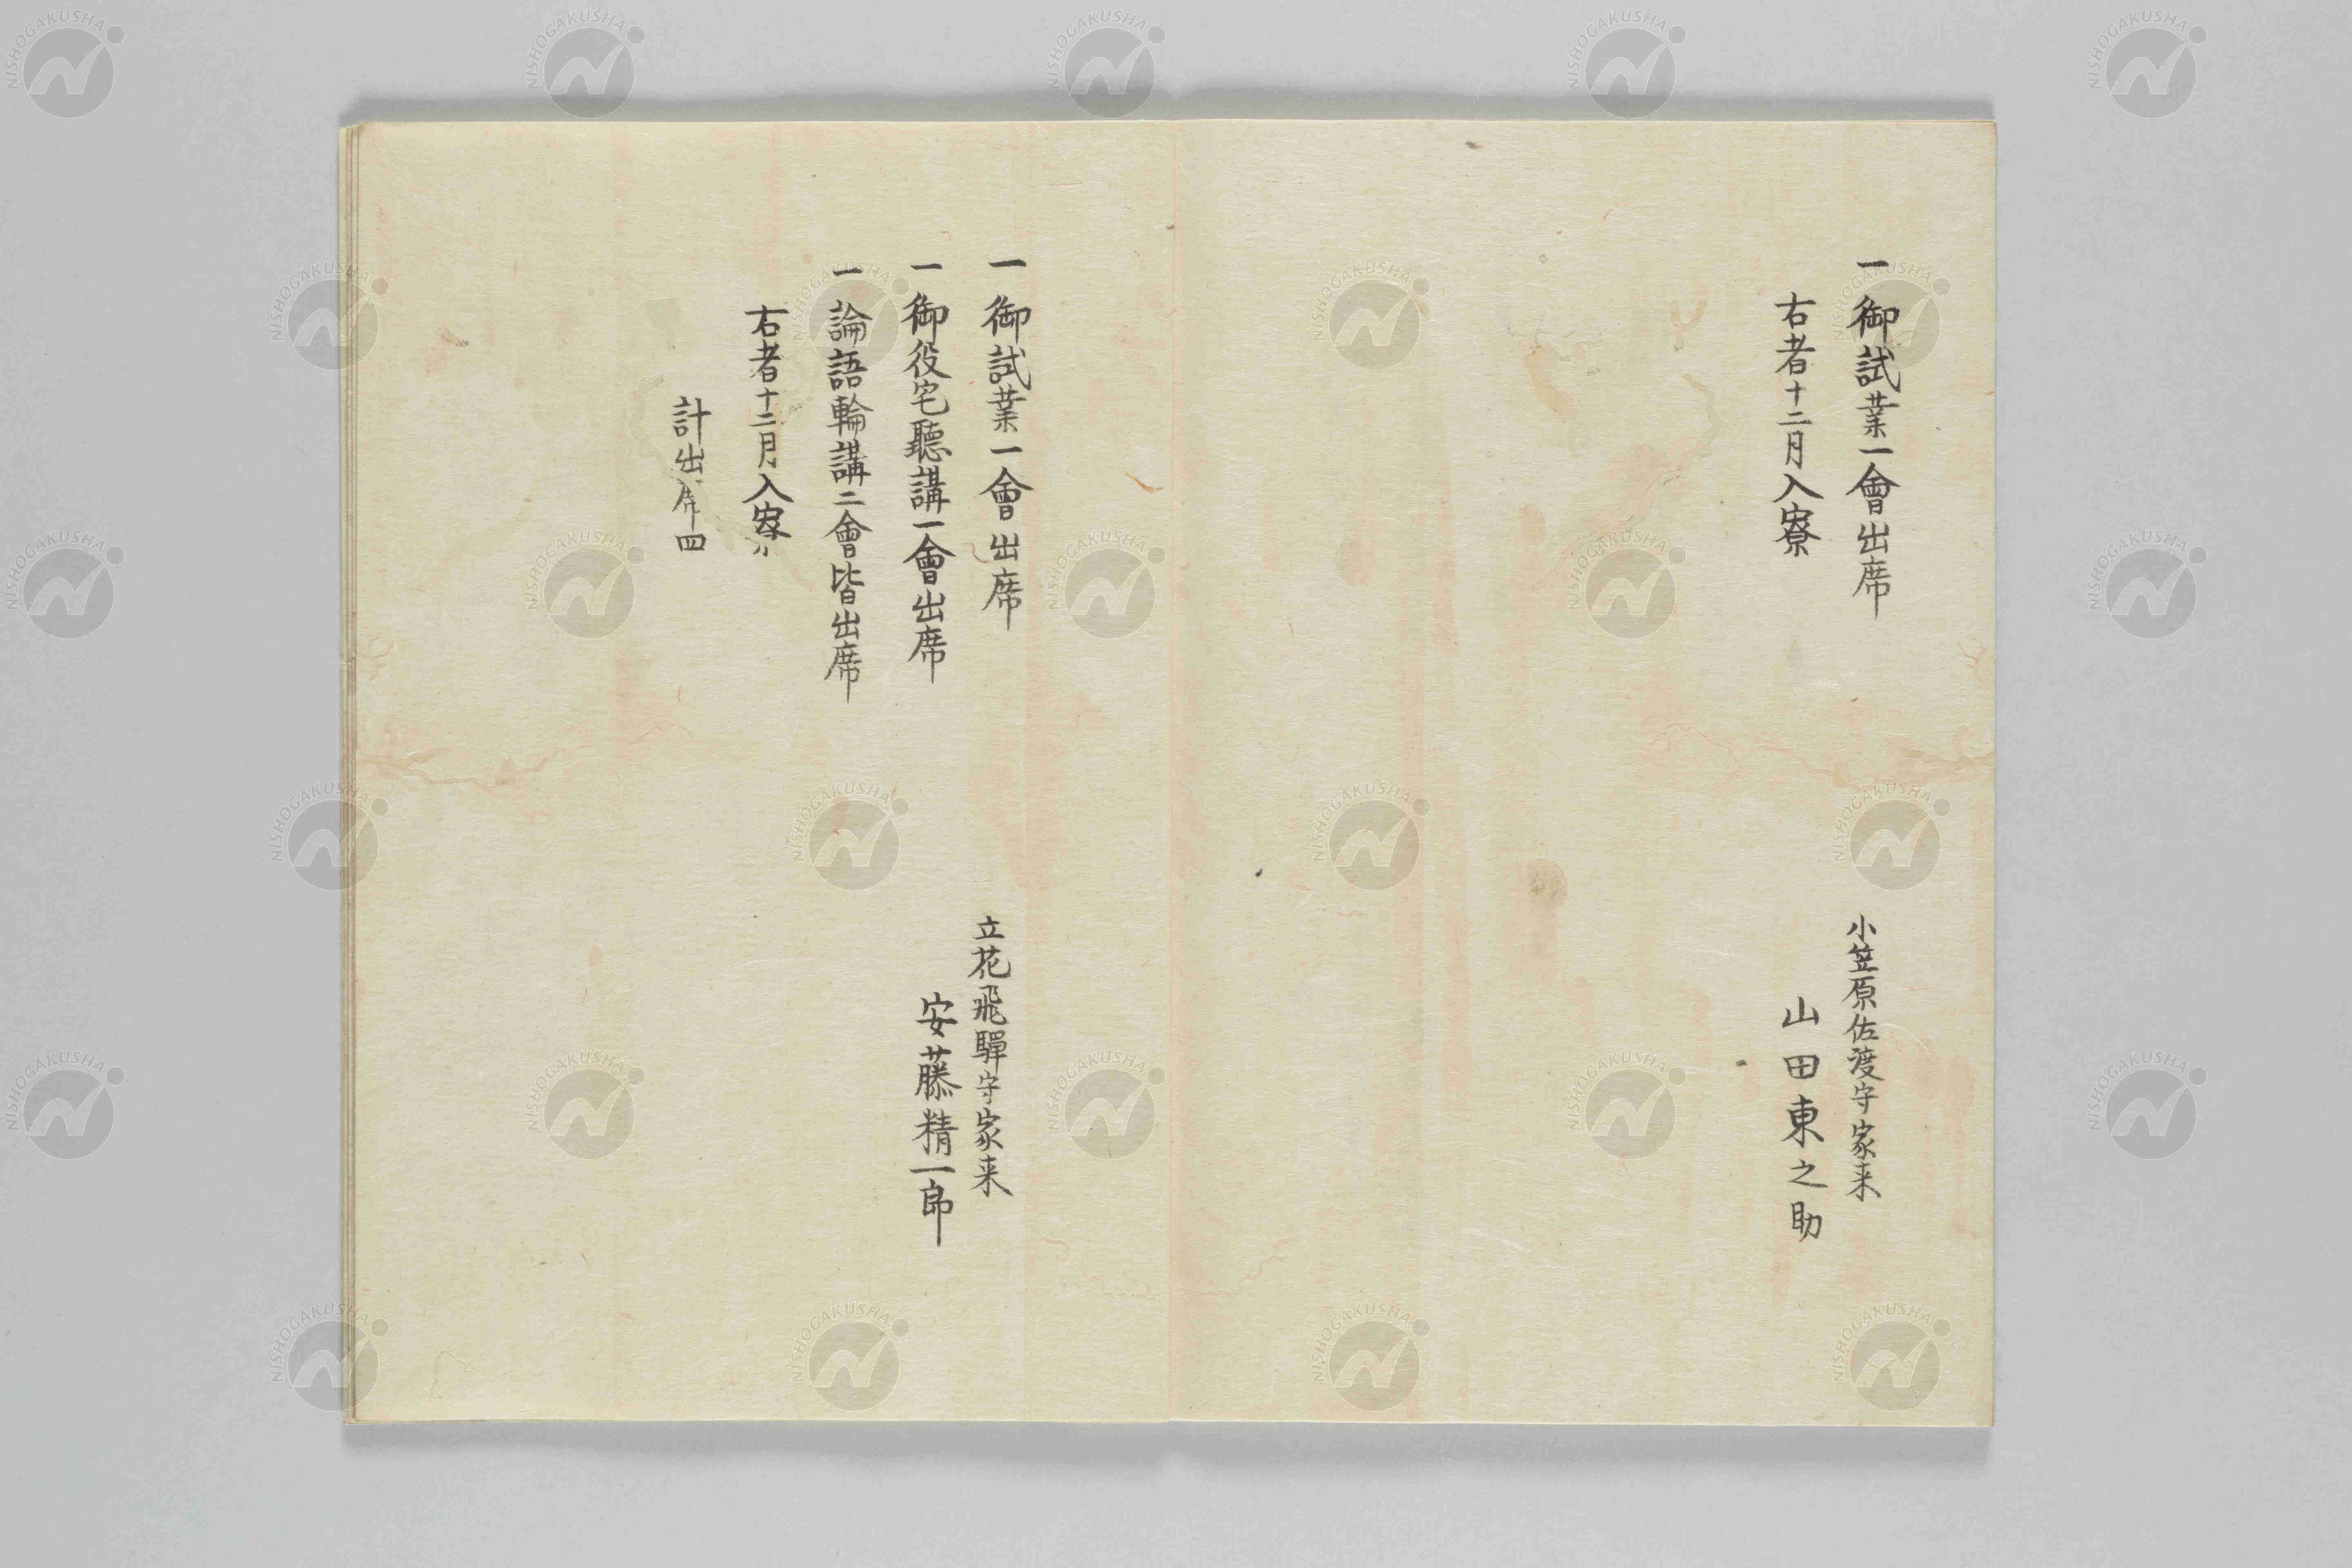 一御試業一會出席
右者十二月入寮
小笠原佐渡守家来
山田東之助
一御試業一會出席
一御役宅聽講一會出席
一論語輪講二會皆出席
右者十二月入寮
計出席四
立花飛驒守家来
安藤精一郎
NISHOGAKUSHA